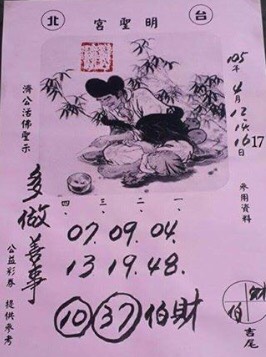 台 明聖宮 北
105年
4月
12.
14.
16 17
濟公活佛聖示
多做善事
公益彩券 提供參考
四、三、二、一、
07.09.04.
13.19.48.
10 37 伯財
財
伯
吉尾